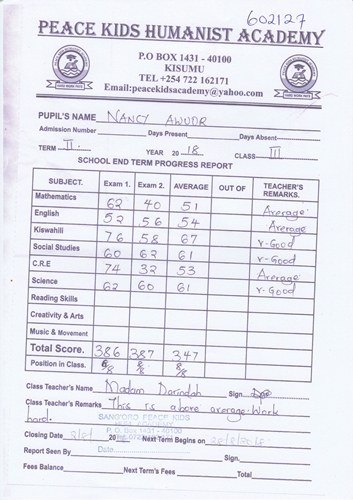 602127
PEACE KIDS HUMANIST ACADEMY
P.O BOX 1431 - 40100
KISUMU
TEL +254 722 162171
Email:peacekidsacademy@yahoo.com
PUPIL'S NAME NANCY AWUOR
Admission Number Days Present Days Absent
TERM II. YEAR 2018 CLASS III
SCHOOL END TERM PROGRESS REPORT
SUBJECT. Exam 1. Exam 2. AVERAGE OUT OF TEACHER'S REMARKS.
Mathematics 62 40 51 Average
English 52 56 54 Average
Kiswahili 76 58 67 v-Good
Social Studies 60 62 61 v-Good
C.R.E 74 32 53 Average
Science 62 60 61 v-Good
Reading Skills
Creativity & Arts
Music & Movement
Total Score. 386 387 347
Position in Class. 8/8 8/8 8/8
Class Teacher's Name Madam Sign.
Class Teacher's Remarks This is above average. Work
hard.
PEACE KIDS
P.O. Box 1431 - 40100
Closing Date 20 Next Term Begins on
Report Seen By Date Sign.
Fees Balance Next Term's Fees Total